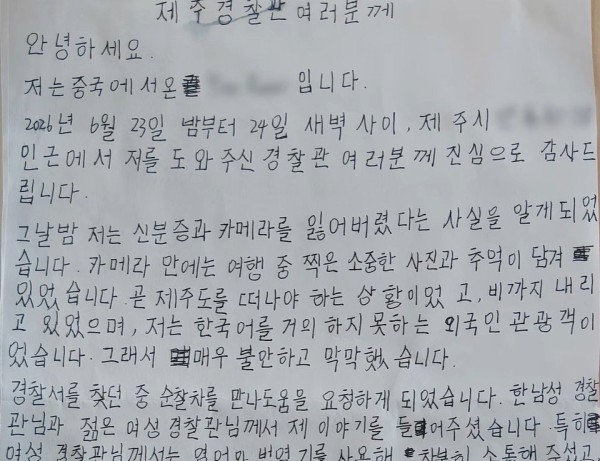 제주경찰관 여러분께
안녕하세요.
저는 중국에서 온 입니다.
2026년 6월 23일 밤부터 24일 새벽 사이, 제주시
인근에서 저를 도와주신 경찰관 여러분께 진심으로 감사드
립니다.
그날밤 저는 신분증과 카메라를 잃어버렸다는 사실을 알게되었
습니다. 카메라 안에는 여행 중 찍은 소중한 사진과 추억이 담겨
있었습니다. 곧 제주도를 떠나야 하는 상황이었고, 비까지 내리
고 있었으며, 저는 한국어를 거의 하지 못하는 외국인 관광객이
었습니다. 그래서 매우 불안하고 막막했습니다.
경찰서를 찾던 중 순찰차를 만나도움을 요청하게 되었습니다. 한남성 경찰
관님과 젊은 여성 경찰관님께서 제 이야기를 들어주셨습니다. 특히
여성 경찰관님께서는 영어와 번역기를 사용해 차분히 소통해 주셨고,